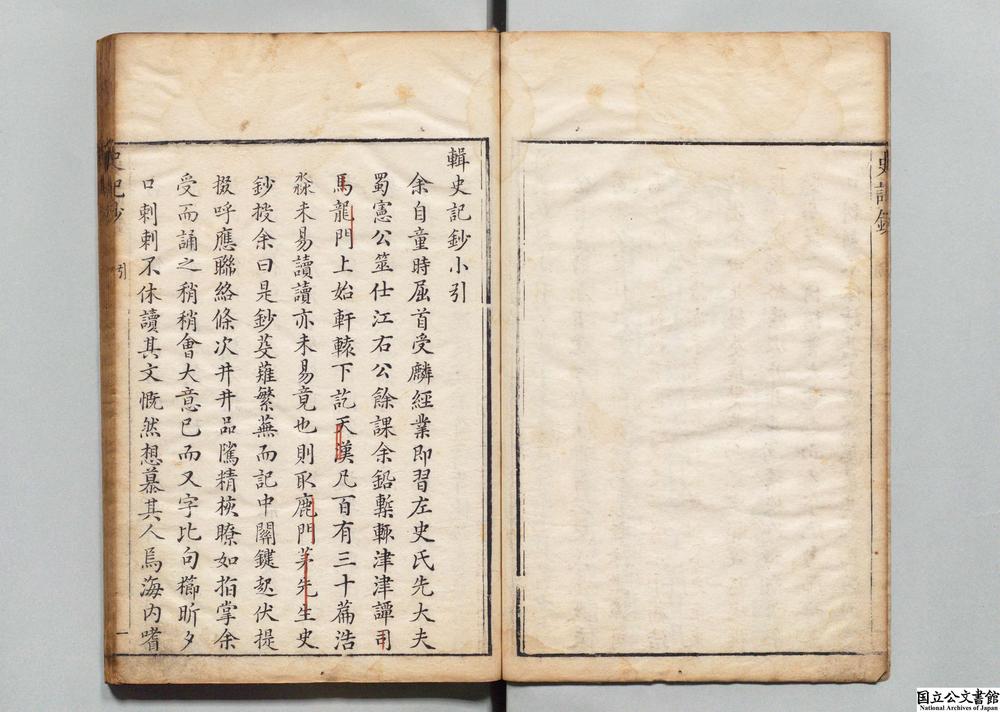 史記鈔
輯史記鈔小引
余自童時屈首受麟經業即習左史氏先大夫
蜀憲公筮仕江右公餘課余鉛槧輒津津譚司
馬龍門上始軒轅下訖天漢凡百有三十篇浩
淼未易讀讀亦未易竟也則取鹿門茅先生史
鈔授余曰是鈔芟薙繁蕪而記中關鍵起伏提
掇呼應聯絡條次井井品騭精核瞭如指掌余
受而誦之稍稍會大意已而又字比句櫛昕夕
口剌剌不休讀其文慨然想慕其人焉海內嗜
史記鈔
引
一
国立公文書館
National Archives of Japan